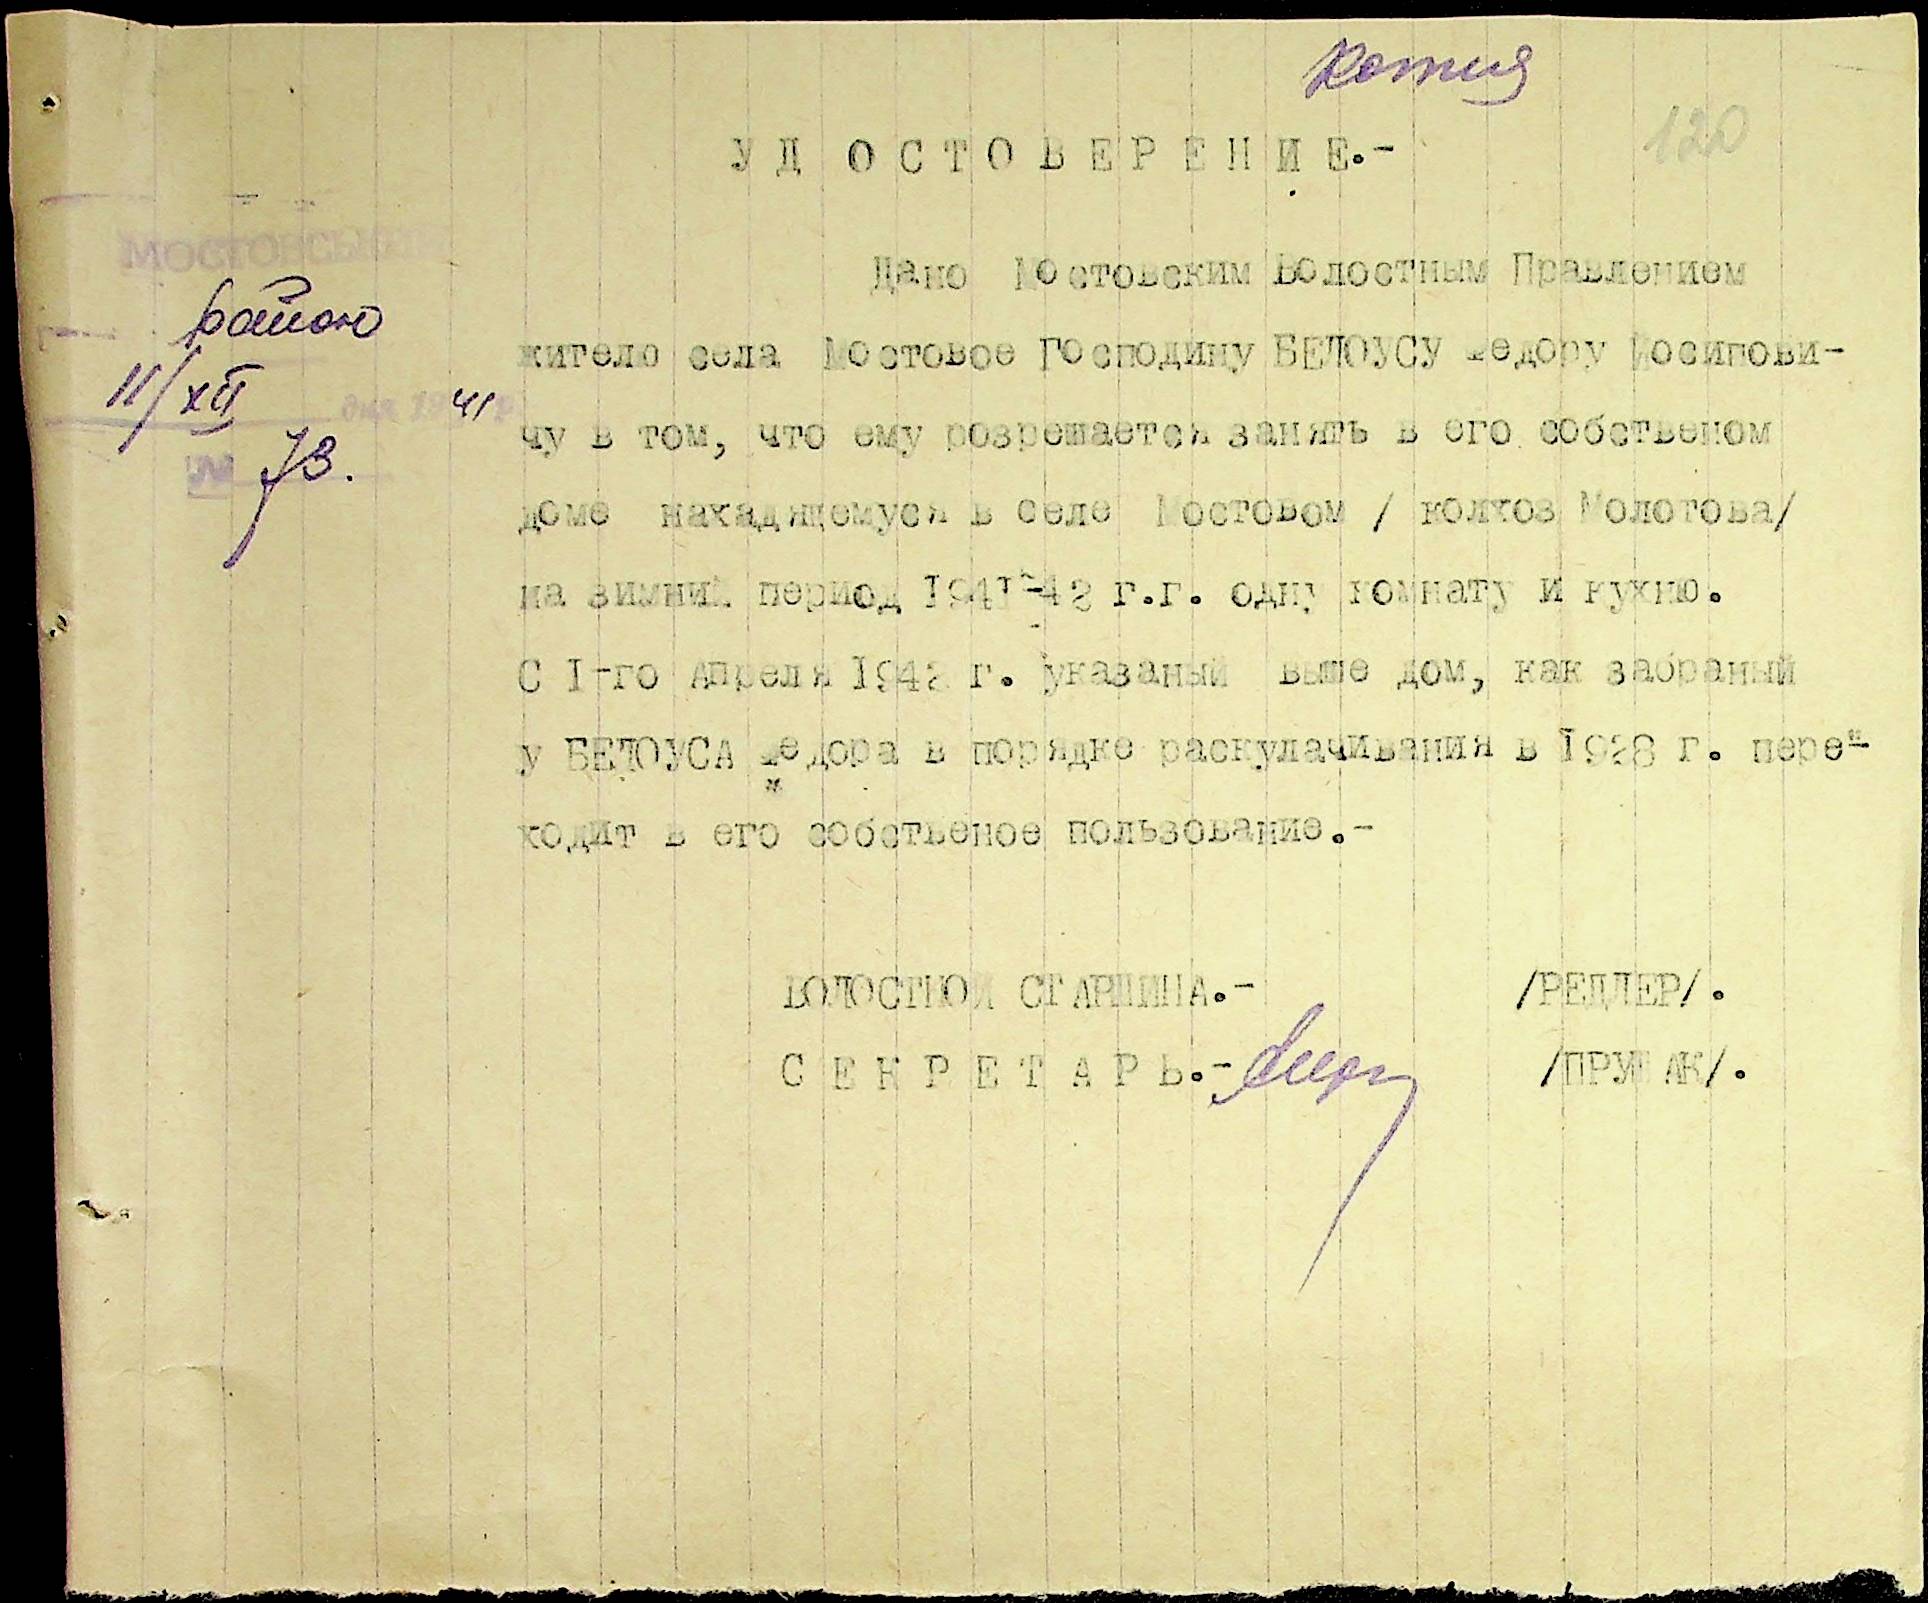 Копия
120
УДОСТОВЕРЕНИЕ.-
МОСТОВСЬК
район
11/XII дня 1941 р
№ 73.
Дано Мостовским Волостным Правлением
жителю села Мостовое Господину БЕЛОУСУ Федору Иосипови-
чу в том, что ему розрешается занять в его собственом
доме нахадящемуся в селе Мостовом / колхоз Молотова/
на зимний период 1941-42 г.г. одну комнату и кухню.
С I-го Апреля 1942 г. указаный выше дом, как забраный
у БЕЛОУСА Федора в порядке раскулачивания в 1928 г. пере-
ходит в его собственое пользование.-
ВОЛОСТНОЙ СТАРШИНА.- /РЕДЛЕР/.
СЕКРЕТАРЬ.- /ПРУШАК/.